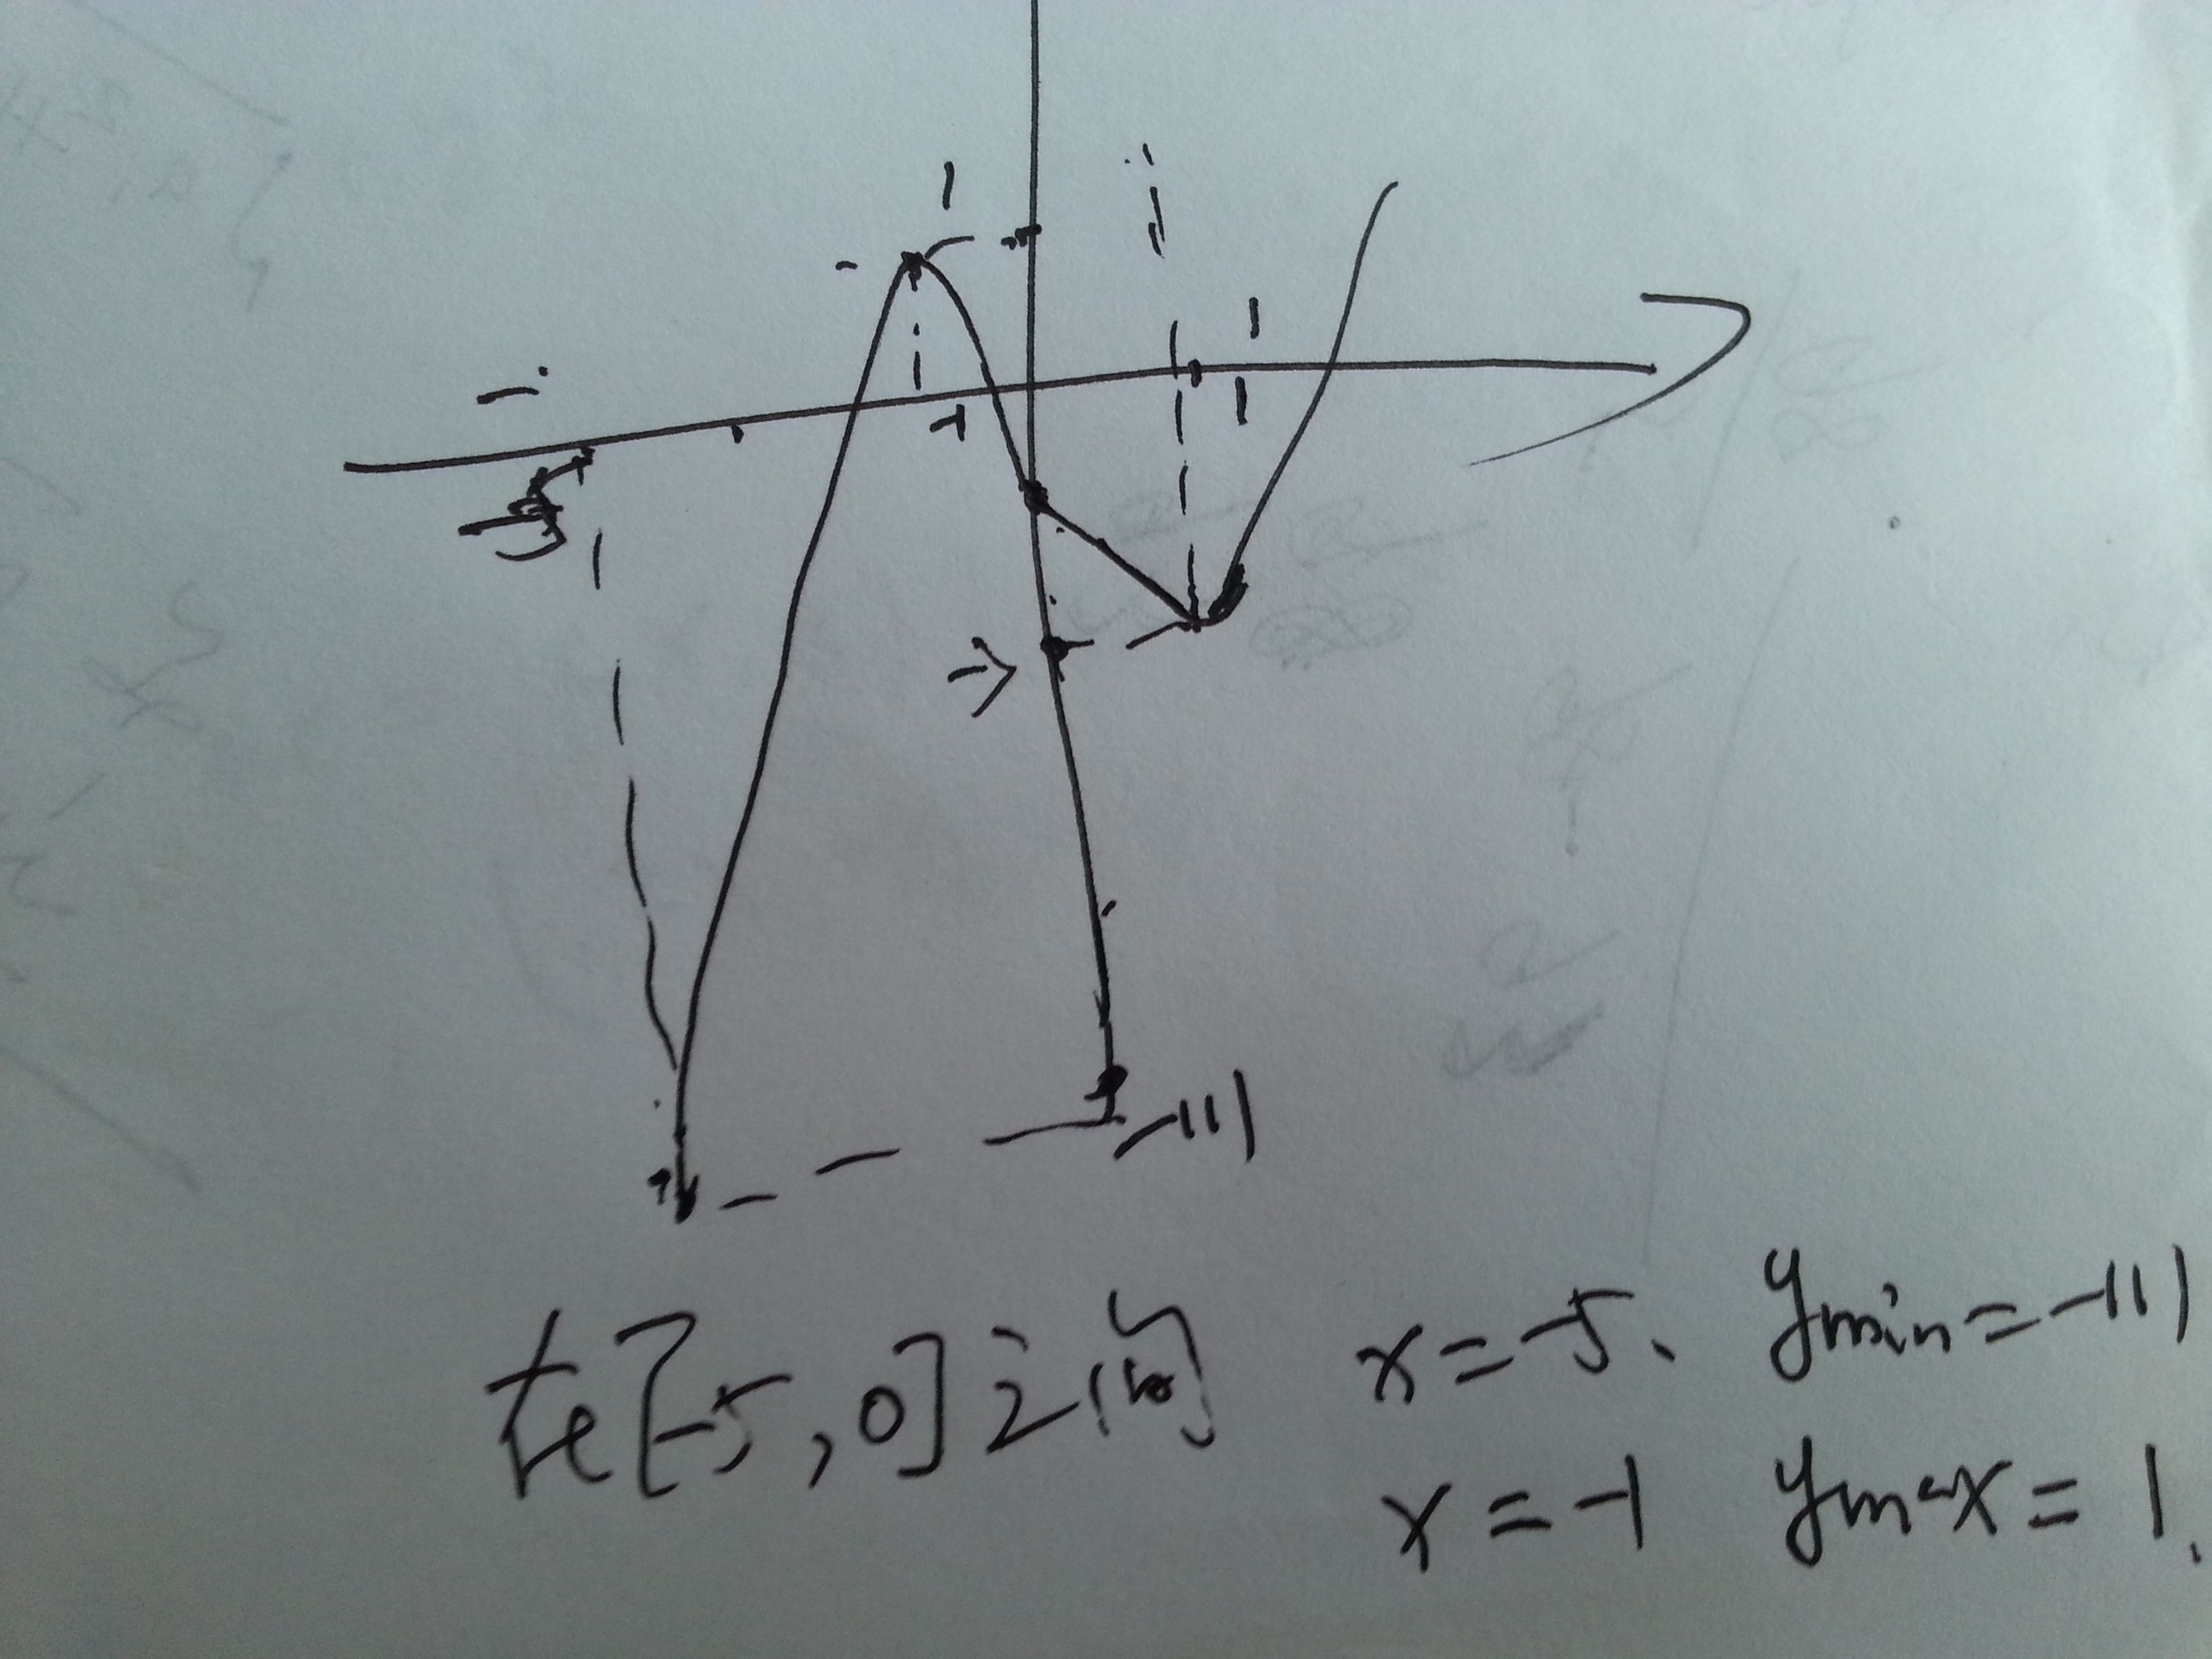 1
1
-1
1
-5
-111
在[-5,0]之间 x=-5、 ymin=-111
x=-1 ymax=1.